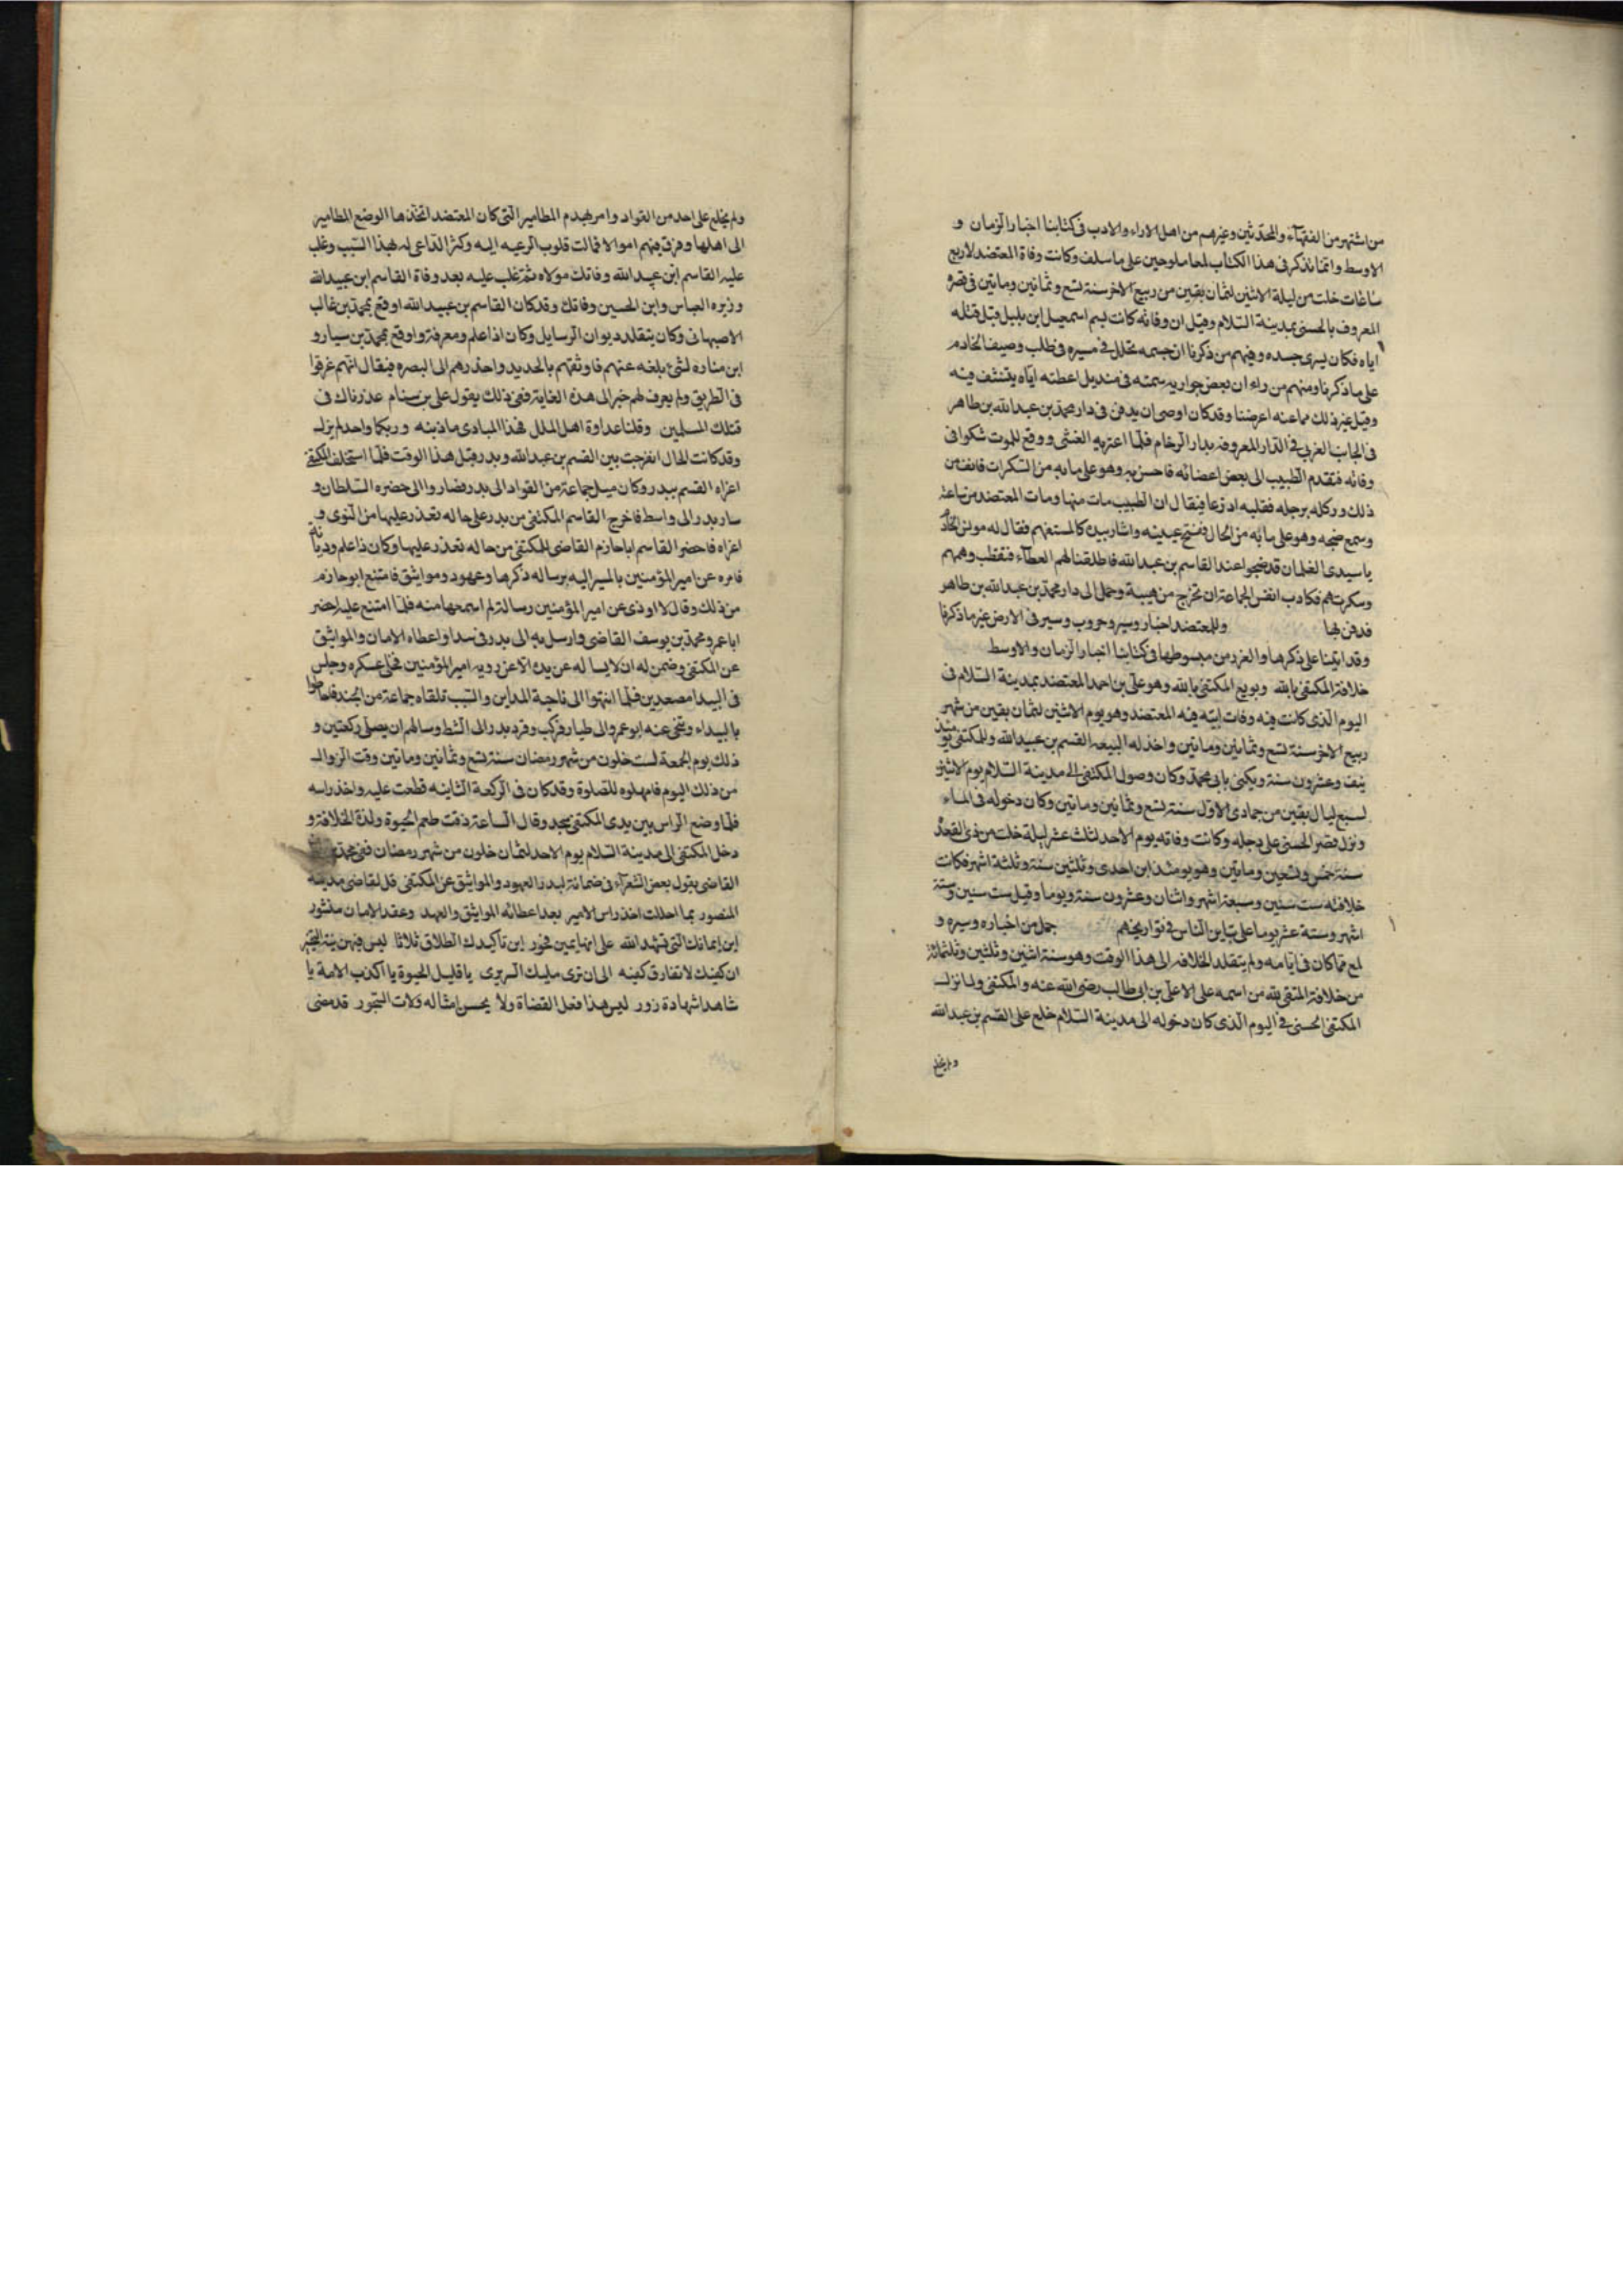 من اشتهر من الفقهآء والمحدثين وغيرهم من اهل الاراء والادب فى كتابنا اخبار الزمان و
الاوسط وانما نذكر فى هذا الكتاب لمعا ملوحين على ما سلف وكانت وفاة المعتضد لاربع
ساعات خلت من ليلة الاثنين لثمان بقين من ربيع الاخر سنة تسع وثمانين وماتين فى قصره
المعروف بالحسنى بمدينة السلام وقيل ان وفاته كانت بسم اسمعيل ابن بلبل قبل قتله
اياه فكان يسرى جسده وفيهم من ذكرنا ان جسمه تحلل فى مسيره فى طلب وصيف الخادم
على ما ذكرنا ومنهم من راى ان بعض جواريه سمته فى منديل اعطته اياه يتنشف فيه
وقيل غير ذلك مما عنه اعرضنا وقد كان اوصى ان يدفن فى دار محمد بن عبد الله بن طاهر
فى الجانب الغربي فى الدار المعروفه بدار الرخام فلما اعتريه الغشى ووقع للموت شكوا فى
وفاته فتقدم الطبيب الى بعض اعضائه فاحس به وهو على ما به من السكرات فانف من
ذلك وركله برجله فقلبه اذرعا فيقال ان الطبيب مات منها ومات المعتضد من ساعته
وسمع ضجه وهو على ما به من الحال ففتح عينيه واشار بيده كالمستفهم فقال له مونس الخادم
يا سيدى الغلمان قد ضجوا عند القاسم بن عبد الله فاطلقنا لهم العطآء فقطب وهمهم
وسكرتهم فكادت انفس الجماعة ان تخرج من هيبة وحمل الى دار محمد بن عبد الله بن طاهر
فدفن بها وللمعتضد اخبار وسير وحروب وسير فى الارض غير ما ذكرنا
وقد اتينا على ذكرها والغرر من مبسوطها فى كتابنا اخبار الزمان والاوسط
خلافة المكتفى بالله وبويع المكتفى بالله وهو على بن احمد المعتضد بمدينة السلام فى
اليوم الذى كانت فيه وفات ابيه فيه المعتضد وهو يوم الاثنين لثمان بقين من شهر
ربيع الاخر سنة تسع وثمانين وماتين واخذ له البيعه القسم بن عبيد الله والمكتفى يومئذ
نيف وعشرون سنة ويكنى بابى محمد وكان وصول المكتفى الى مدينة السلام يوم الاثنين
لسبع ليال بقين من جمادى الاول سنة تسع وثمانين وماتين وكان دخوله فى الماء
ونزل قصر الحسنى على دجله وكانت وفاته يوم الاحد لثلث عشر ليلة خلت من ذى القعده
سنة خمس وتسعين وماتين وهو يومئذ ابن احدى وثلثين سنة وثلثة اشهر فكانت
خلافته ست سنين وسبعة اشهر واثنان وعشرون سنة ويوما وقيل ست سنين وستة
اشهر وستة عشر يوما على تباين الناس فى تواريخهم جمل من اخباره وسيره و
لمع مما كان فى ايامه ولم يتقلد الخلافه الى هذا الوقت وهو سنة اثنين وثلثين وثلثمائة
من خلافة المتقى لله من اسمه على الا على بن ابى طالب رضى الله عنه والمكتفى ولما نزل
المكتفى الحسنى فى اليوم الذى كان دخوله الى مدينة السلام خلع على القسم بن عبد الله
ولم يخلع
ولم يخلع على احد من القواد وامر بهدم المطامير التى كان المعتضد اتخذها الوضع المطامير
الى اهلها وفرق فيهم اموالا فمالت قلوب الرعيه اليه وكثر الداعى له بهذا السبب وغلب
عليه القاسم ابن عبد الله وفاتك مولاه ثم غلب عليه بعد وفاة القاسم ابن عبيد الله
وزيره العباس وابن الحسين وفاتك وقد كان القاسم بن عبيد الله اوقع بمحمد بن غالب
الاصبهانى وكان يتقلد ديوان الرسايل وكان اذا علم ومعرفة واوقع بمحمد بن سيار و
ابن مناره لشئ بلغه عنهم فاوثقهم بالحديد واحدرهم الى البصره فيقال انهم غرقوا
فى الطريق ولم يعرف لهم خبر الى هذه الغاية ففى ذلك يقول على بن بسام عذرناك فى
قتلك المسلمين وقلنا عداوة اهل الملل فهذا المبادى ما ذنبه وربكما واحد لم يزل
وقد كانت الحال انفرجت بين القسم بن عبد الله وبدر قبل هذا الوقت فلما استخلف المكتفى
اغراه القسم ببدر وكان ميل جماعة من القواد الى بدر فضاروا الى حضره السلطان و
سار بدر الى واسط فاخرج القاسم المكتفى من بدر على حاله تعذر عليها من النوى و
اغراه فاحضر القاسم اباحازم القاضى للمكتفى من حاله تعذر عليها وكان ذا علم وديانه
فامره عن امير المؤمنين بالمسير اليه برساله ذكرها وعهود ومواثيق فامتنع ابو حازم
من ذلك وقال لا اوذى عن امير المؤمنين رسالة لم اسمعها منه فلما امتنع عليه احضر
ابا عمرو محمد بن يوسف القاضى وارسل به الى بدر فى سدا واعطاه الامان والمواثيق
عن المكتفى وضمن له ان لا يساله عن يده الا عن رويه امير المؤمنين فخلى عسكره وجلس
فى البيدا مصعدين فلما انتهوا الى ناحية المداين والسيب تلقاه جماعة من الجند فاحاطوا
بالبيداء وتنحى عنه ابو عمرو الى طيار فركب وقرب بدر الى الشط وسالهم ان يصلى ركعتين و
ذلك يوم الجمعة لست خلون من شهر رمضان سنة تسع وثمانين وماتين وقت الزوال
من ذلك اليوم فامهلوه للصلوة وقد كان فى الركعة الثانيه قطعت عليه واخذ راسه
فلما وضع الراس بين يدى المكتفى سجد وقال الساعة ذقت طعم الحيوة ولذة الخلافة و
دخل المكتفى الى مدينة السلام يوم الاحد لثمان خلون من شهر رمضان ففى محمد
القاضى يقول بعض الشعرآء فى ضمانة لبدر العهود والمواثيق عن المكتفى قل لقاضى مدينة
المنصور بما احللت اخذ راس الامير بعد اعطائه المواثيق والعهد وعقد الامان منشور
اين ايمانك التى شهد الله على انها يمين فجور اين تاكيدك الطلاق ثلاثا ليس فيهن نية التخير
ان كفيك لا تفارق كفيه الى ان ترى مليك السريرى يا قليل الحيوة يا اكذب الامة يا
شاهدا شهادة زور ليس هذا فعل القضاة ولا يحسن امثاله ولات التجور قد مضى